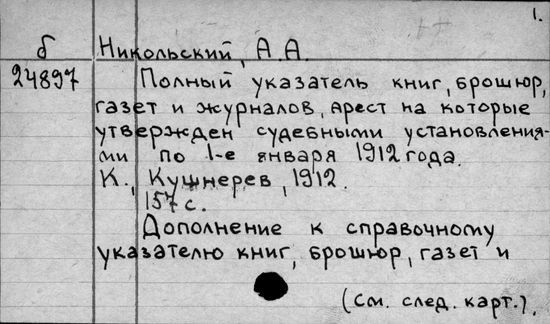 1.
б Никольский, А.А.
24897 Полный указатель книг, брошюр,
газет и журналов, арест на которые
утвержден судебными установления-
ми по 1-е января 1912 года.
К., Кушнерев, 1912.
157 с.
Дополнение к справочному
указателю книг, брошюр, газет и
(См. след. карт.).